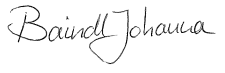 Baindl Johanna